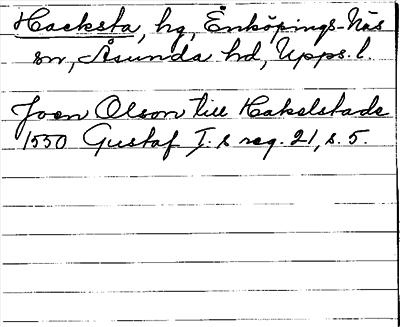 Hacksta, hg, Enköpings-Näs
sn, Åsunda hd, Upps. l.
Joen Olson till Hakelstade
1550 Gustaf I:s reg. 21, s. 5.